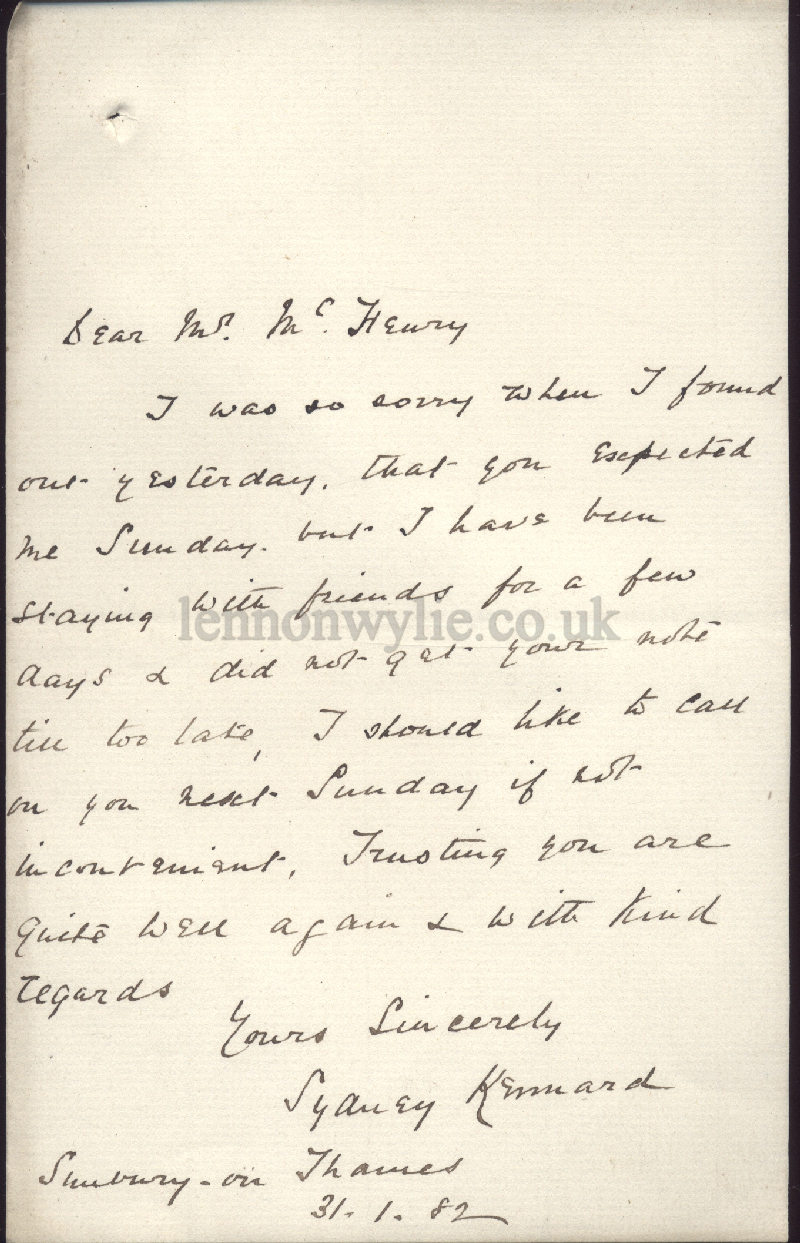 Dear Mr. Mc. Henry
I was so sorry when I found
out yesterday. that you expected
me Sunday. but I have been
staying with friends for a few
lennonwylie.co.uk
days & did not get your note
till too late, I should like to call
on you next Sunday if not
inconvenient. Trusting you are
quite well again & with kind
regards
Yours Sincerely
Sydney Kennard
Sunbury-on Thames
31. 1. 82